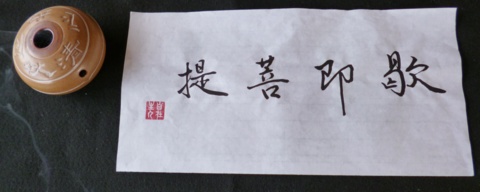 歇即菩提